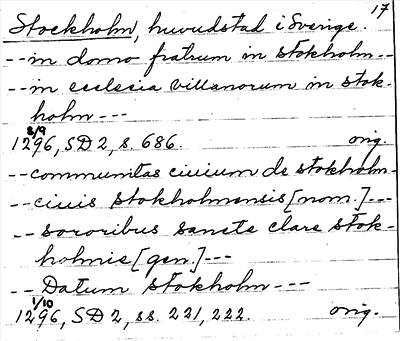 17
Stockholm, huvudstad i Sverige.
-- in domo fratrum in stokholm --
-- in ecclesia villanorum in stok-
holm ---
8/9
1296, SD 2, s. 686. orig.
-- communitas ciuium de stokholm -
-- ciuis stokholmensis [nom.] ---
-- sororibus sancte clare stok-
holmie [gen.] ---
-- Datum stokholm ---
1/10
1296, SD 2, ss. 221, 222. orig.